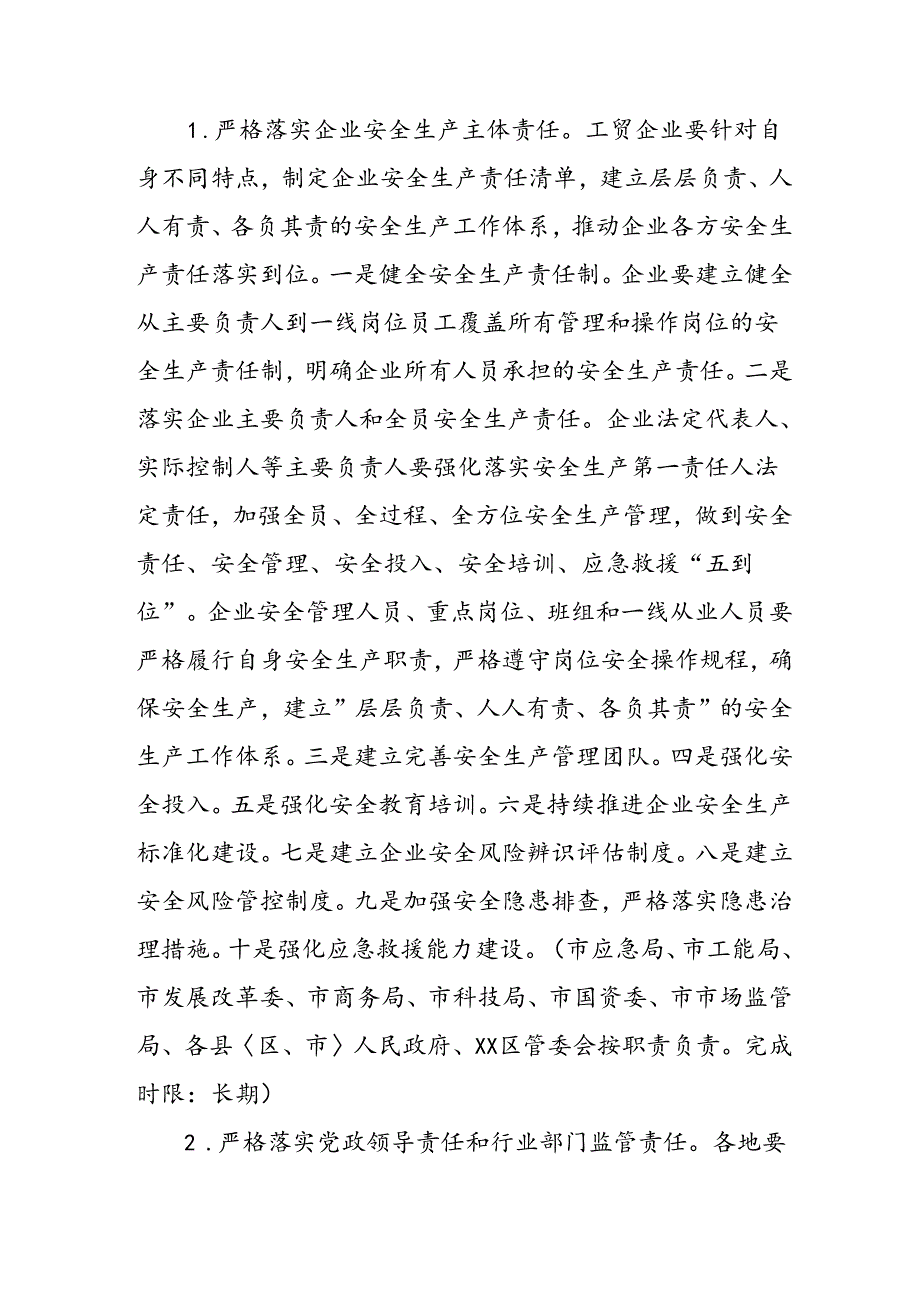 1.严格落实企业安全生产主体责任。工贸企业要针对自
身不同特点，制定企业安全生产责任清单，建立层层负责、人
人有责、各负其责的安全生产工作体系，推动企业各方安全生
产责任落实到位。一是健全安全生产责任制。企业要建立健全
从主要负责人到一线岗位员工覆盖所有管理和操作岗位的安
全生产责任制，明确企业所有人员承担的安全生产责任。二是
落实企业主要负责人和全员安全生产责任。企业法定代表人、
实际控制人等主要负责人要强化落实安全生产第一责任人法
定责任，加强全员、全过程、全方位安全生产管理，做到安全
责任、安全管理、安全投入、安全培训、应急救援“五到
位”。企业安全管理人员、重点岗位、班组和一线从业人员要
严格履行自身安全生产职责，严格遵守岗位安全操作规程，确
保安全生产，建立”层层负责、人人有责、各负其责”的安全
生产工作体系。三是建立完善安全生产管理团队。四是强化安
全投入。五是强化安全教育培训。六是持续推进企业安全生产
标准化建设。七是建立企业安全风险辨识评估制度。八是建立
安全风险管控制度。九是加强安全隐患排查，严格落实隐患治
理措施。十是强化应急救援能力建设。（市应急局、市工能局、
市发展改革委、市商务局、市科技局、市国资委、市市场监管
局、各县〈区、市〉人民政府、XX区管委会按职责负责。完成
时限：长期）
2.严格落实党政领导责任和行业部门监管责任。各地要